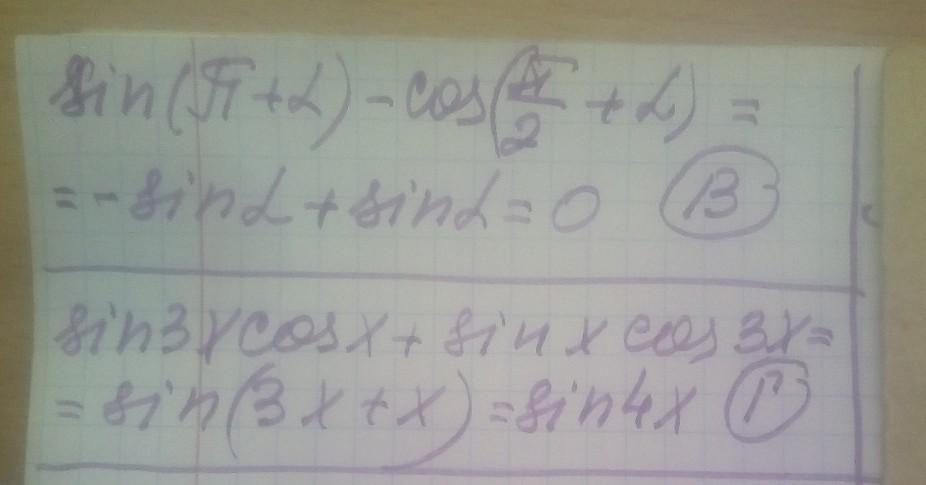 sin(π+α)-cos(π/2+α)=
=-sinα+sinα=0 В
sin3xcosx+sinxcos3x=
=sin(3x+x)=sin4x Г